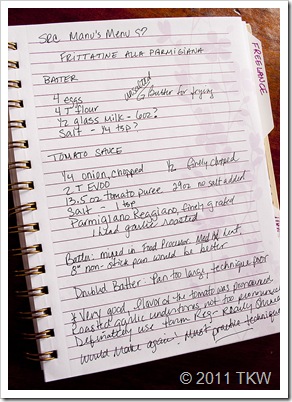 src. Manu's Menu
FRITTATINE ALLA PARMIGIANA
BATTER
4 eggs
unsalted
Butter for frying
4 T flour
1/2 glass milk - 6oz?
Salt - 1/4 tsp?
TOMATO SAUCE
1/4 onion, chopped 1/2 finely chopped
2 T EVOO
13.5 oz tomato puree 29oz no salt added
Salt - 1t
Parmigiano Reggiano, finely grated
1 clove garlic roasted
Batter: mixed in Food Processor. Med heat,
8" non-stick pan would be better
Doubled Batter: Pan too large, technique poor
* Very good, flavor of the tomato was pronounced
Roasted garlic undertones not too pronounced
Definately use Parm Reg - Really Shines
Would make again! Must practice technique
FREELANCE
© 2011 TKW